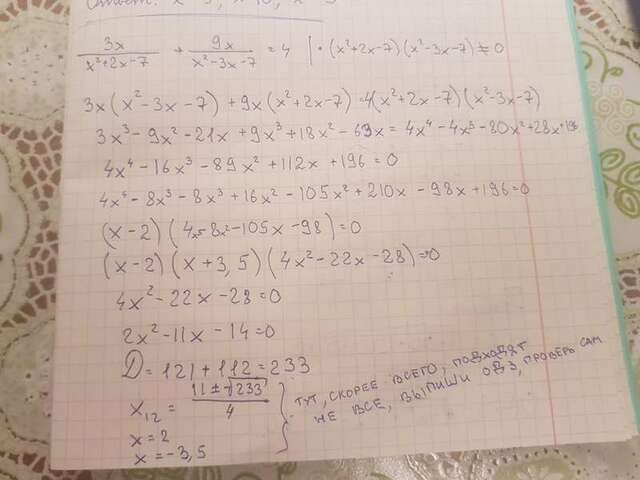 3x/(x²+2x-7) + 9x/(x²-3x-7) = 4 | · (x²+2x-7)(x²-3x-7) ≠ 0
3x(x²-3x-7) + 9x(x²+2x-7) = 4(x²+2x-7)(x²-3x-7)
3x³-9x²-21x + 9x³+18x²-63x = 4x⁴-4x³-80x²+28x+196
4x⁴-16x³-89x²+112x+196=0
4x⁴-8x³-8x³+16x²-105x²+210x-98x+196=0
(x-2)(4x³-8x²-105x-98)=0
(x-2)(x+3,5)(4x²-22x-28)=0
4x²-22x-28=0
2x²-11x-14=0
D=121+112=233
x₁₂ = (11±√233)/4
x=2
x=-3,5
} тут, скорее всего, подходят
не все, выпиши одз, проверь сам